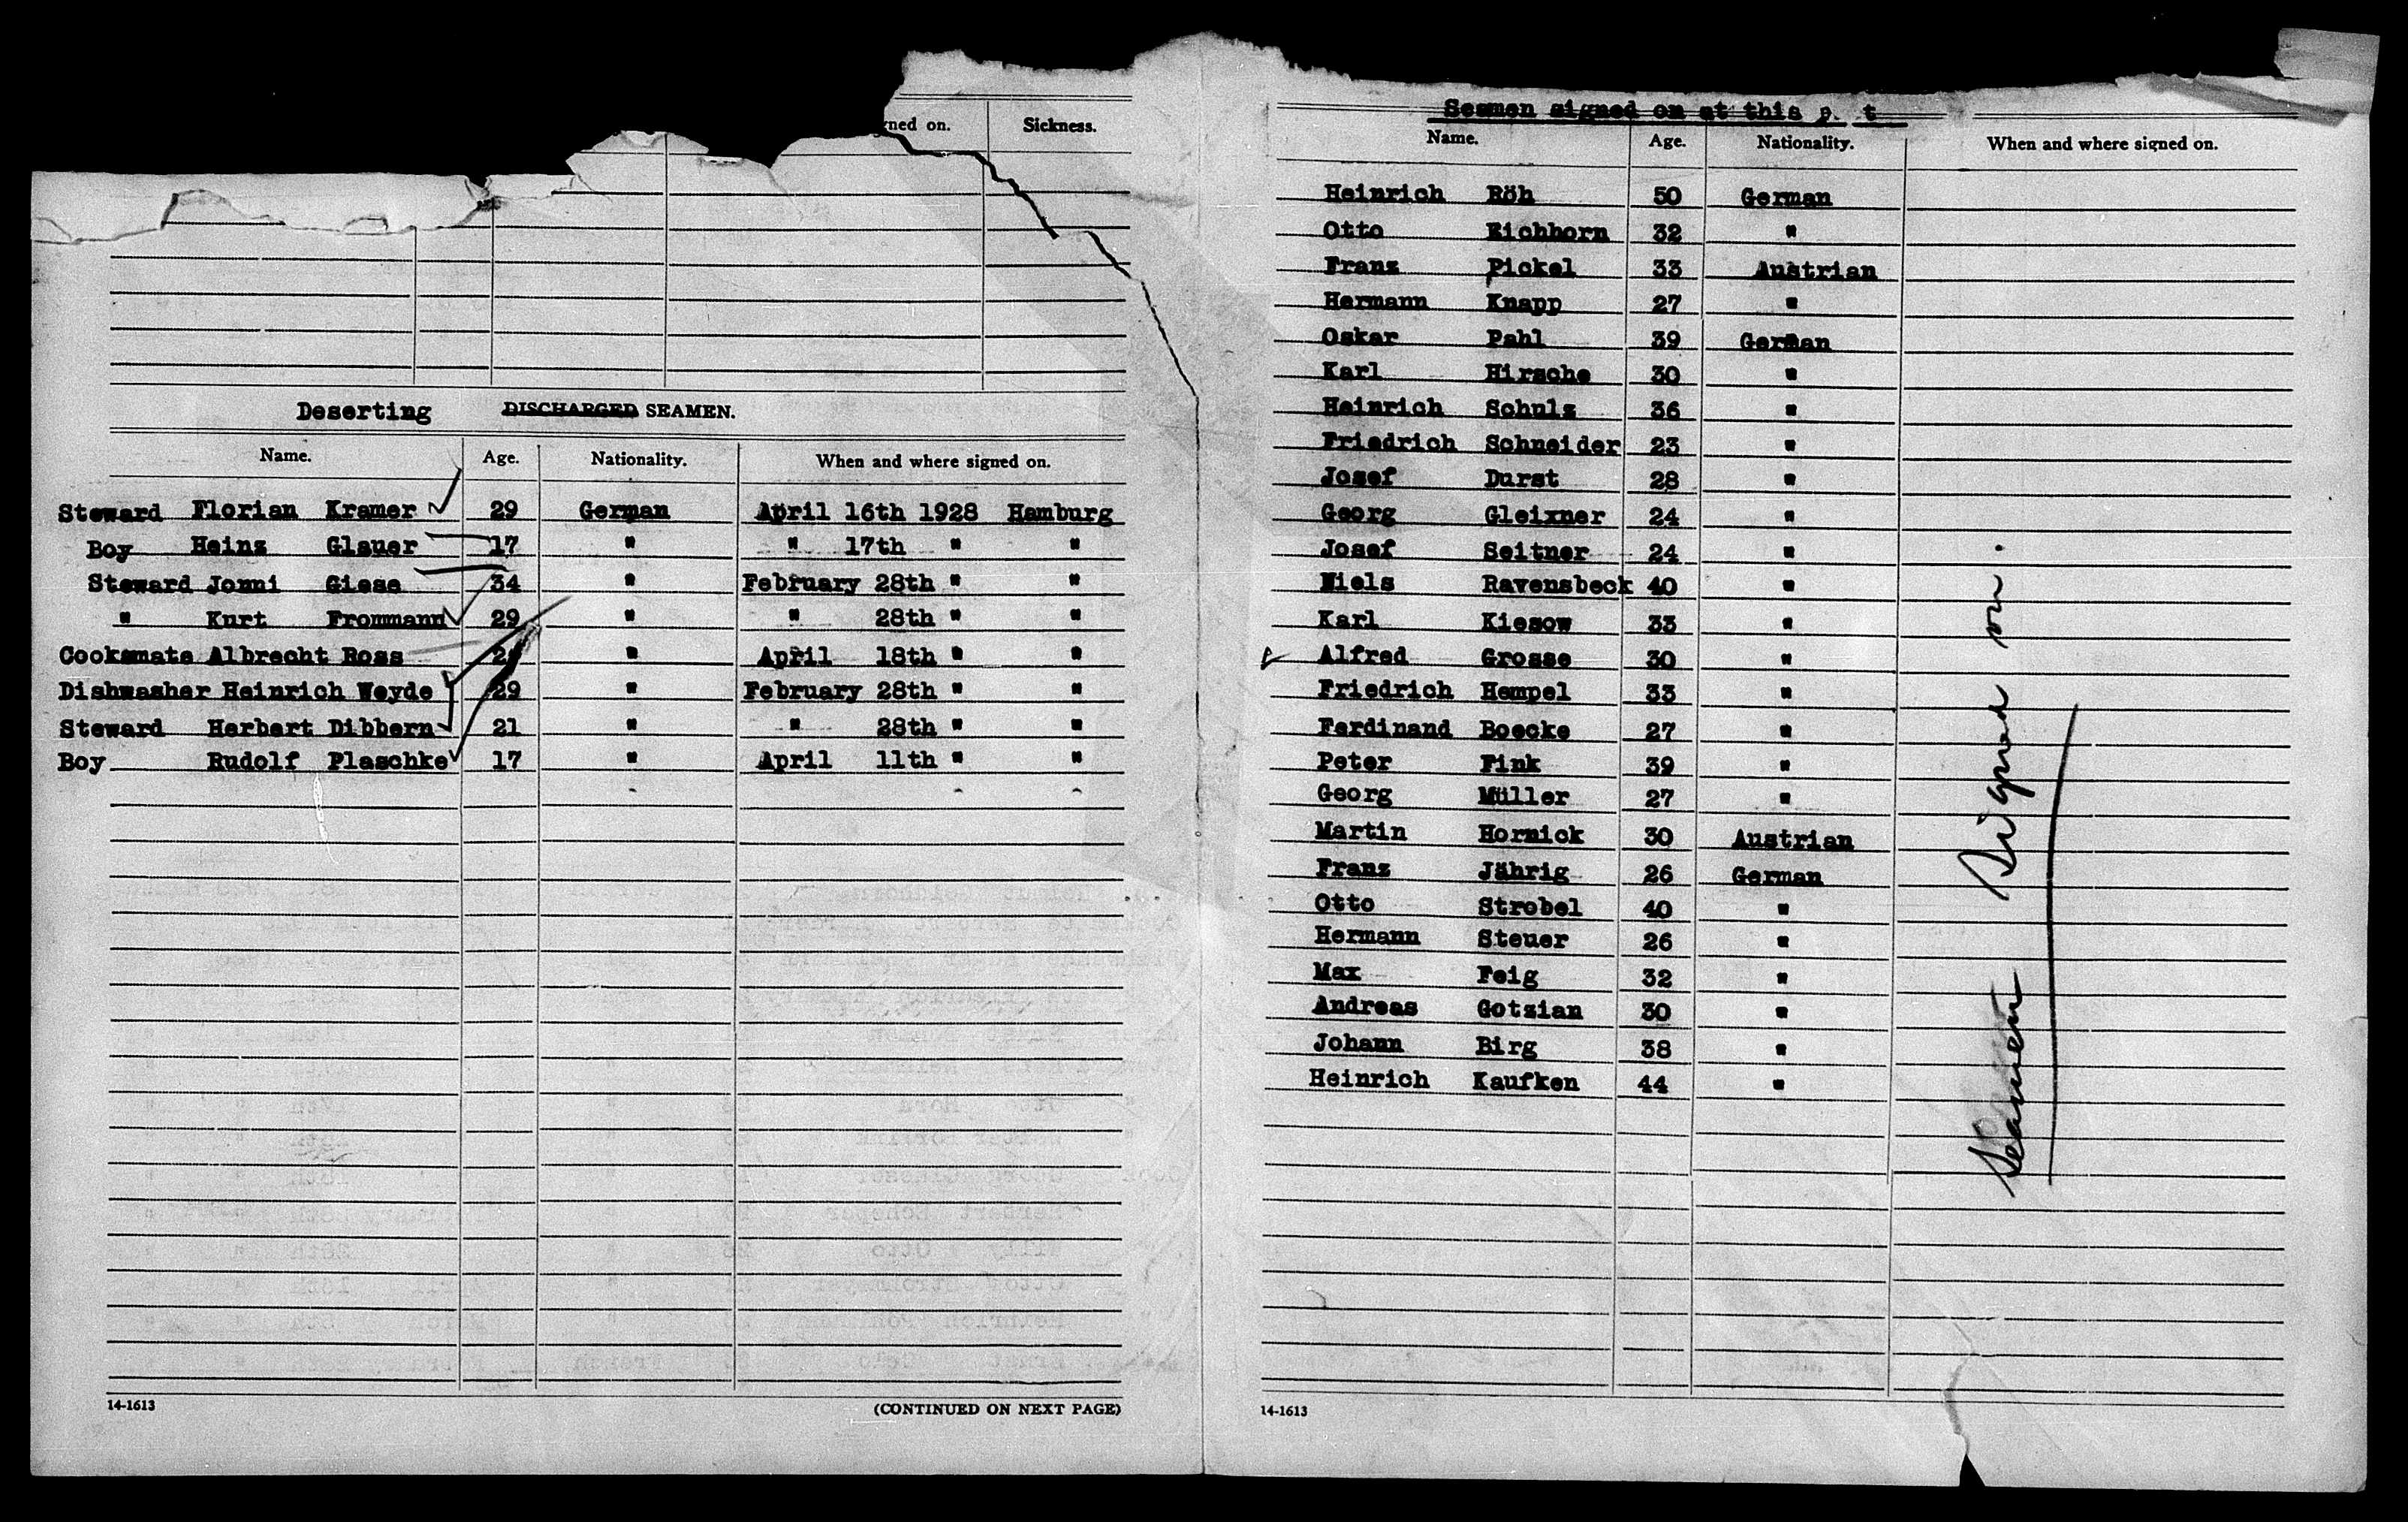 gned on. Sickness.
Deserting DISCHARGED SEAMEN.
Name. Age. Nationality. When and where signed on.
Steward Florian Kramer 29 German April 16th 1928 Hamburg
Boy Heinz Glauer 17 " " 17th " "
Steward Jonni Giese 34 " February 28th " "
" Kurt Frommann 29 " " 28th " "
Cooksmate Albrecht Ross " April 18th " "
Dishwasher Heinrich Weyde 29 " February 28th " "
Steward Herbert Dibbern 21 " " 28th " "
Boy Rudolf Plaschke 17 " April 11th " "
14-1613 (CONTINUED ON NEXT PAGE)
Seamen signed on at this p t
Name. Age. Nationality. When and where signed on.
Heinrich Röh 50 German
Otto Eichhorn 32 "
Franz Pickel 33 Austrian
Hermann Knapp 27 "
Oskar Pahl 39 German
Karl Hirsche 30 "
Heinrich Schulz 36 "
Friedrich Schneider 23 "
Josef Durst 28 "
Georg Gleixner 24 "
Josef Seitner 24 "
Niels Ravensbeck 40 "
Karl Kiesow 33 "
Alfred Grosse 30 "
Friedrich Hempel 33 "
Ferdinand Boecke 27 "
Peter Fink 39 "
Georg Müller 27 "
Martin Hornick 30 Austrian
Franz Jährig 26 German
Otto Strobel 40 "
Hermann Steuer 26 "
Max Feig 32 "
Andreas Gotzian 30 "
Johann Birg 38 "
Heinrich Kaufken 44 "
Seamen Signed on.
14-1613